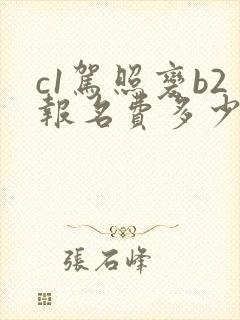 c1駕照變b2
報名費多少
張石峰